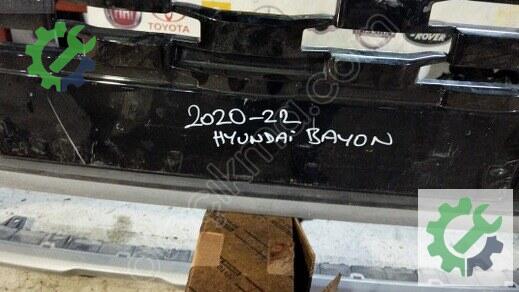 FIAT TOYOTA ROVER
2020-22
HYUNDAi BAYON